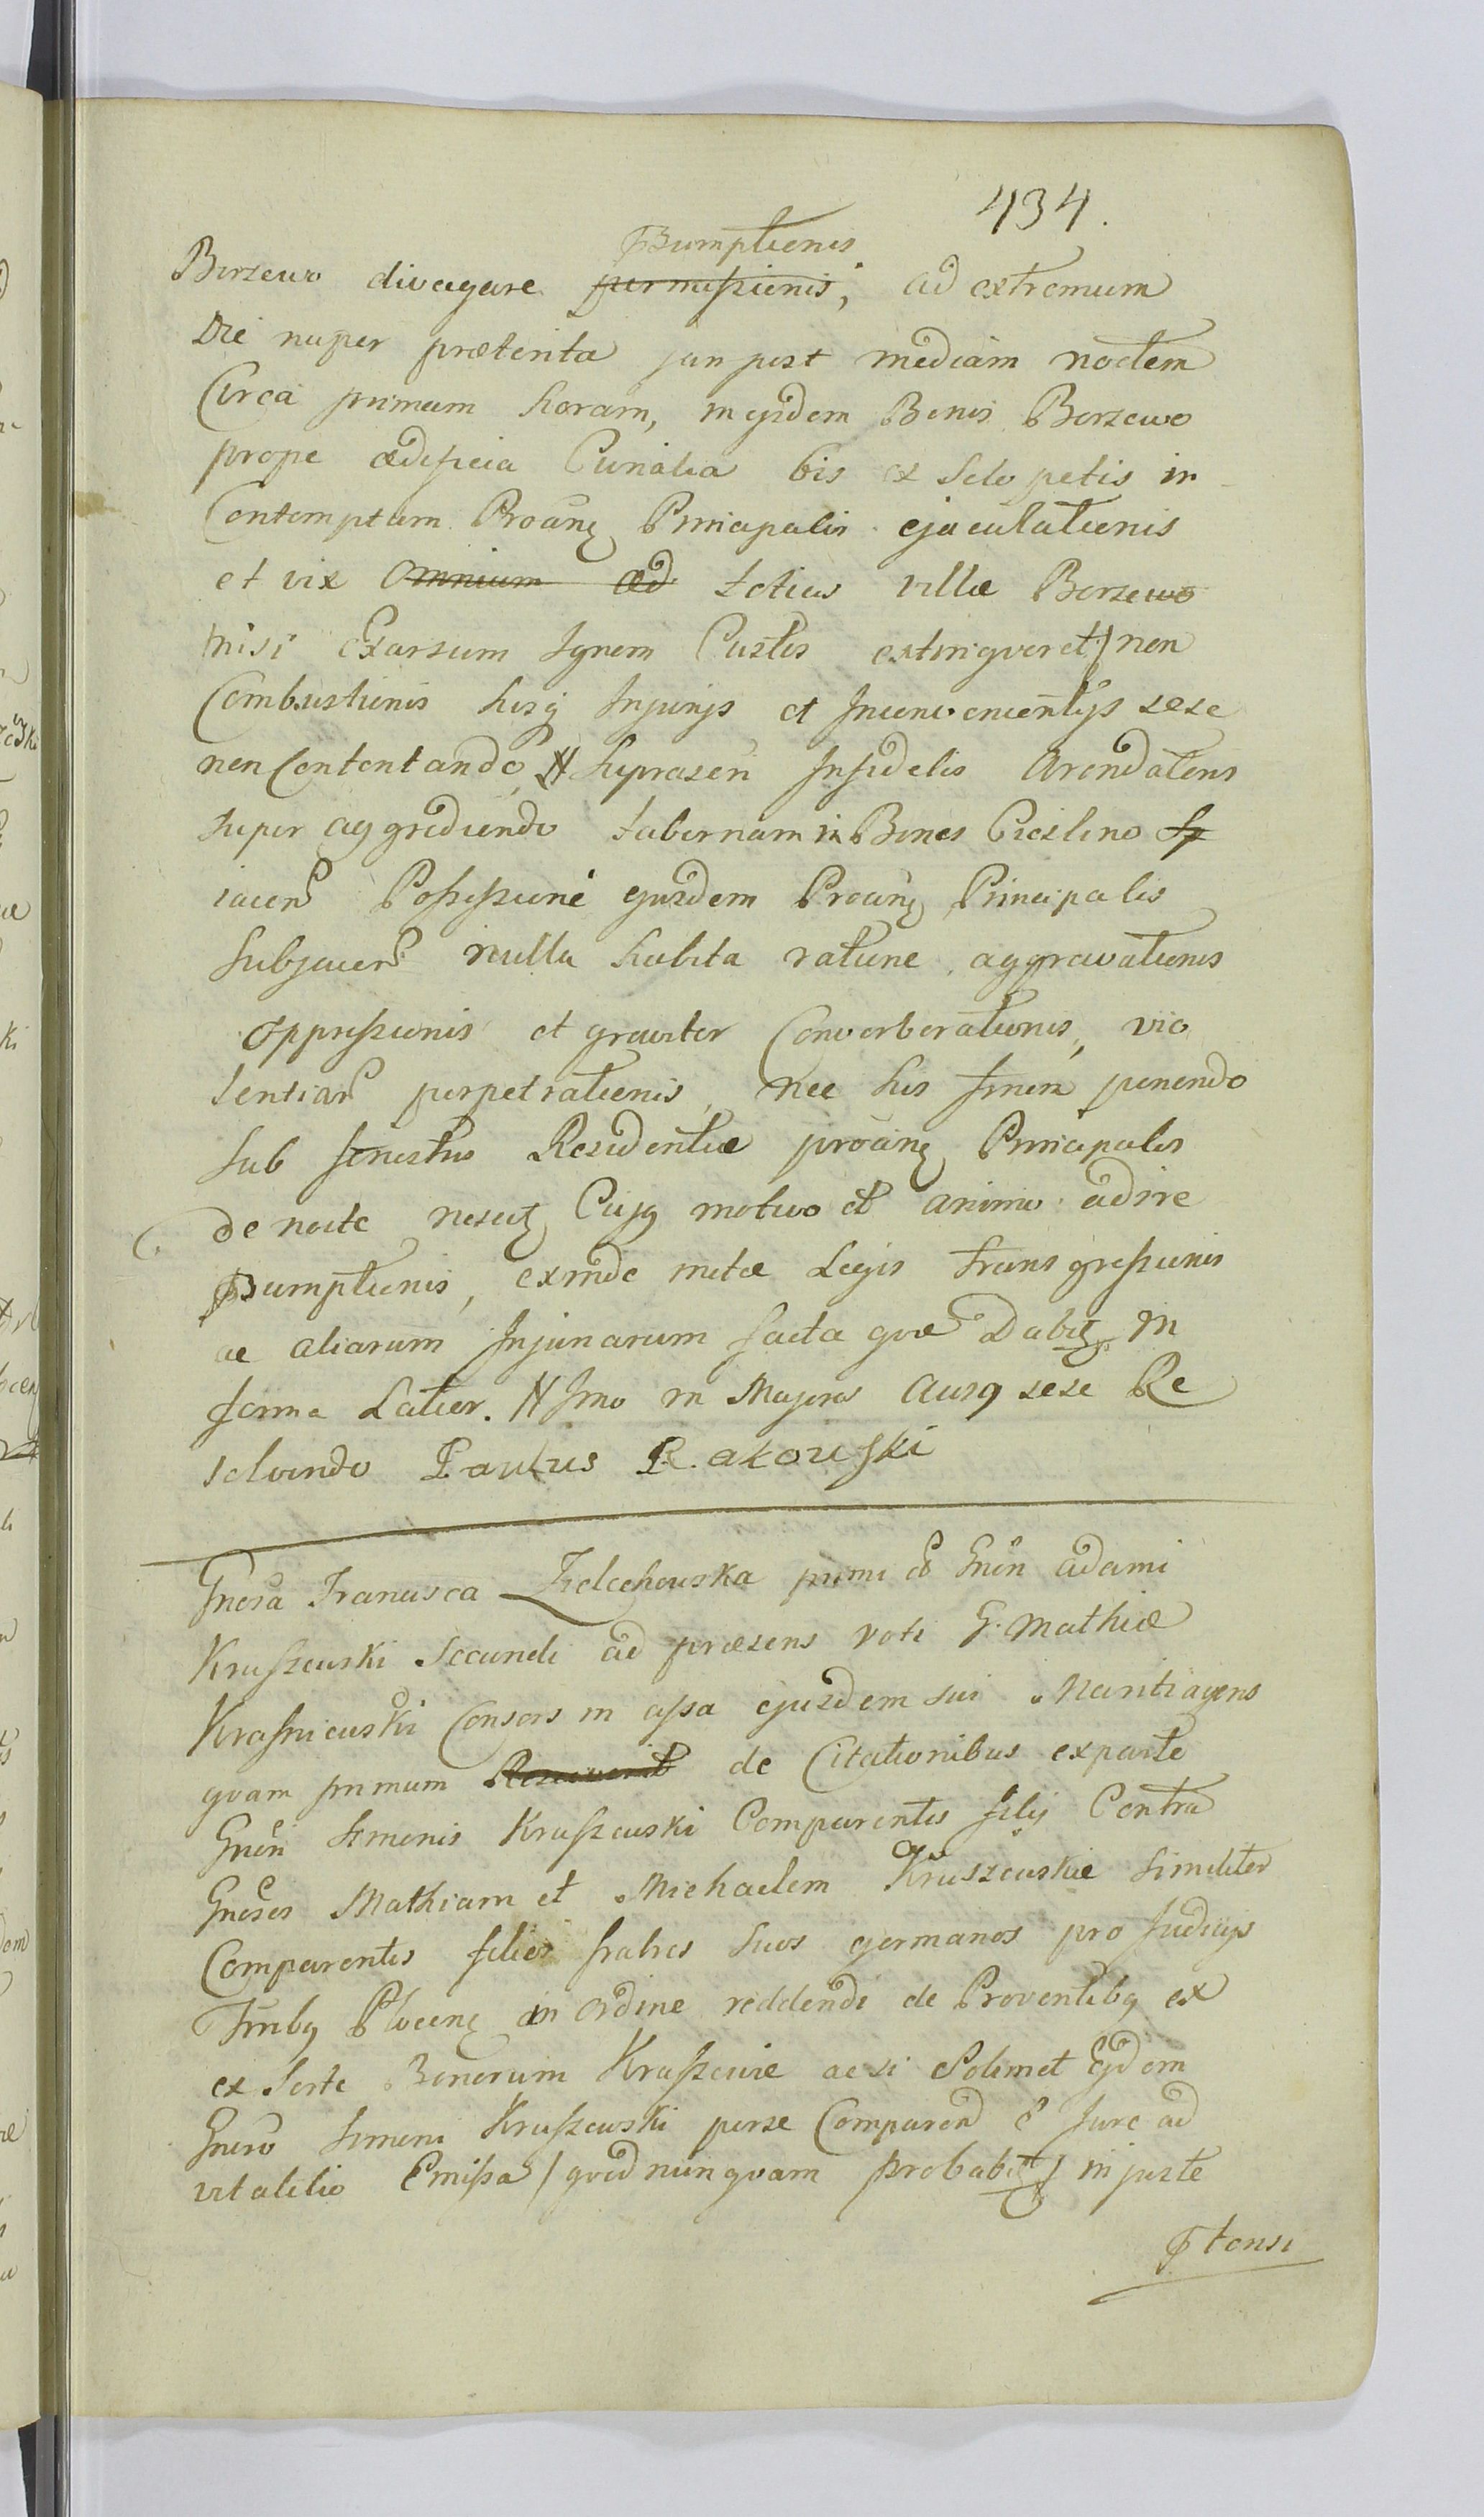 434.
Pśumptionis
Borzewo divagare permissionis, ad extremum
Die nuper præterita jam post mediam noctem
Circa primam horam, in ejsdem Bonis Borzewo
prope ædificia Curialia bis ex Sclopetis in
Contemptum Proanę Principalis ejaculationis
et vix omnium æd totius villæ Borzewo
nisi exarsum Ignem Custos extingveret) non
Combustionis hisq Injurijs et Inconvenientijs sese
non Contentando, # Suprascri Infidelis Arendatoris
super aggrediendo tabernam in Bonis Cieslino
iacen Possessioni ejusdem Proanę Principalis
Subjacen nulla habita ratione aggravationis
oppressionis et graviter Converberationis, vio
lentiar perpetrationis, nec his finem ponendo
sub fenestris Residentiæ proanę Principalis
de nocte nescitę Cujq motivo et animo adire
Psumptionis, exinde metæ Legis transgressionis
ac aliarum Injuriarum facta qvæ Dabitę in
forma Latior. # Imo in Majores Ausq sese Re
solvendo Paulus Rakowski
Gnosa Francisca Zelechowska primi o Gnen Adami
Kruszewski Secundi ad præsens voti G. Mathiæ
Krasniewski Consors in assa ejusdem sui Mariti agens
qvam primum de Citationibus ex parte
Gnen Simonis Kruszewski Comparentis filij Contra
Gnosos Mathiam et Michaelem Kruszewskie similiter
Comparentis filios fratres suos germanos pro Judicijs
Trnlbq Plocenę in ordine reddendi de Proventibq ex
ex Sorte Bonorum Kruszewie ac si Solimet Ejdem
Gnero Simoni Kruszewski per se Comparend e Jure ad
vitalitio Emissa / qvod nunqvam probabitę) injuste
Ptensi